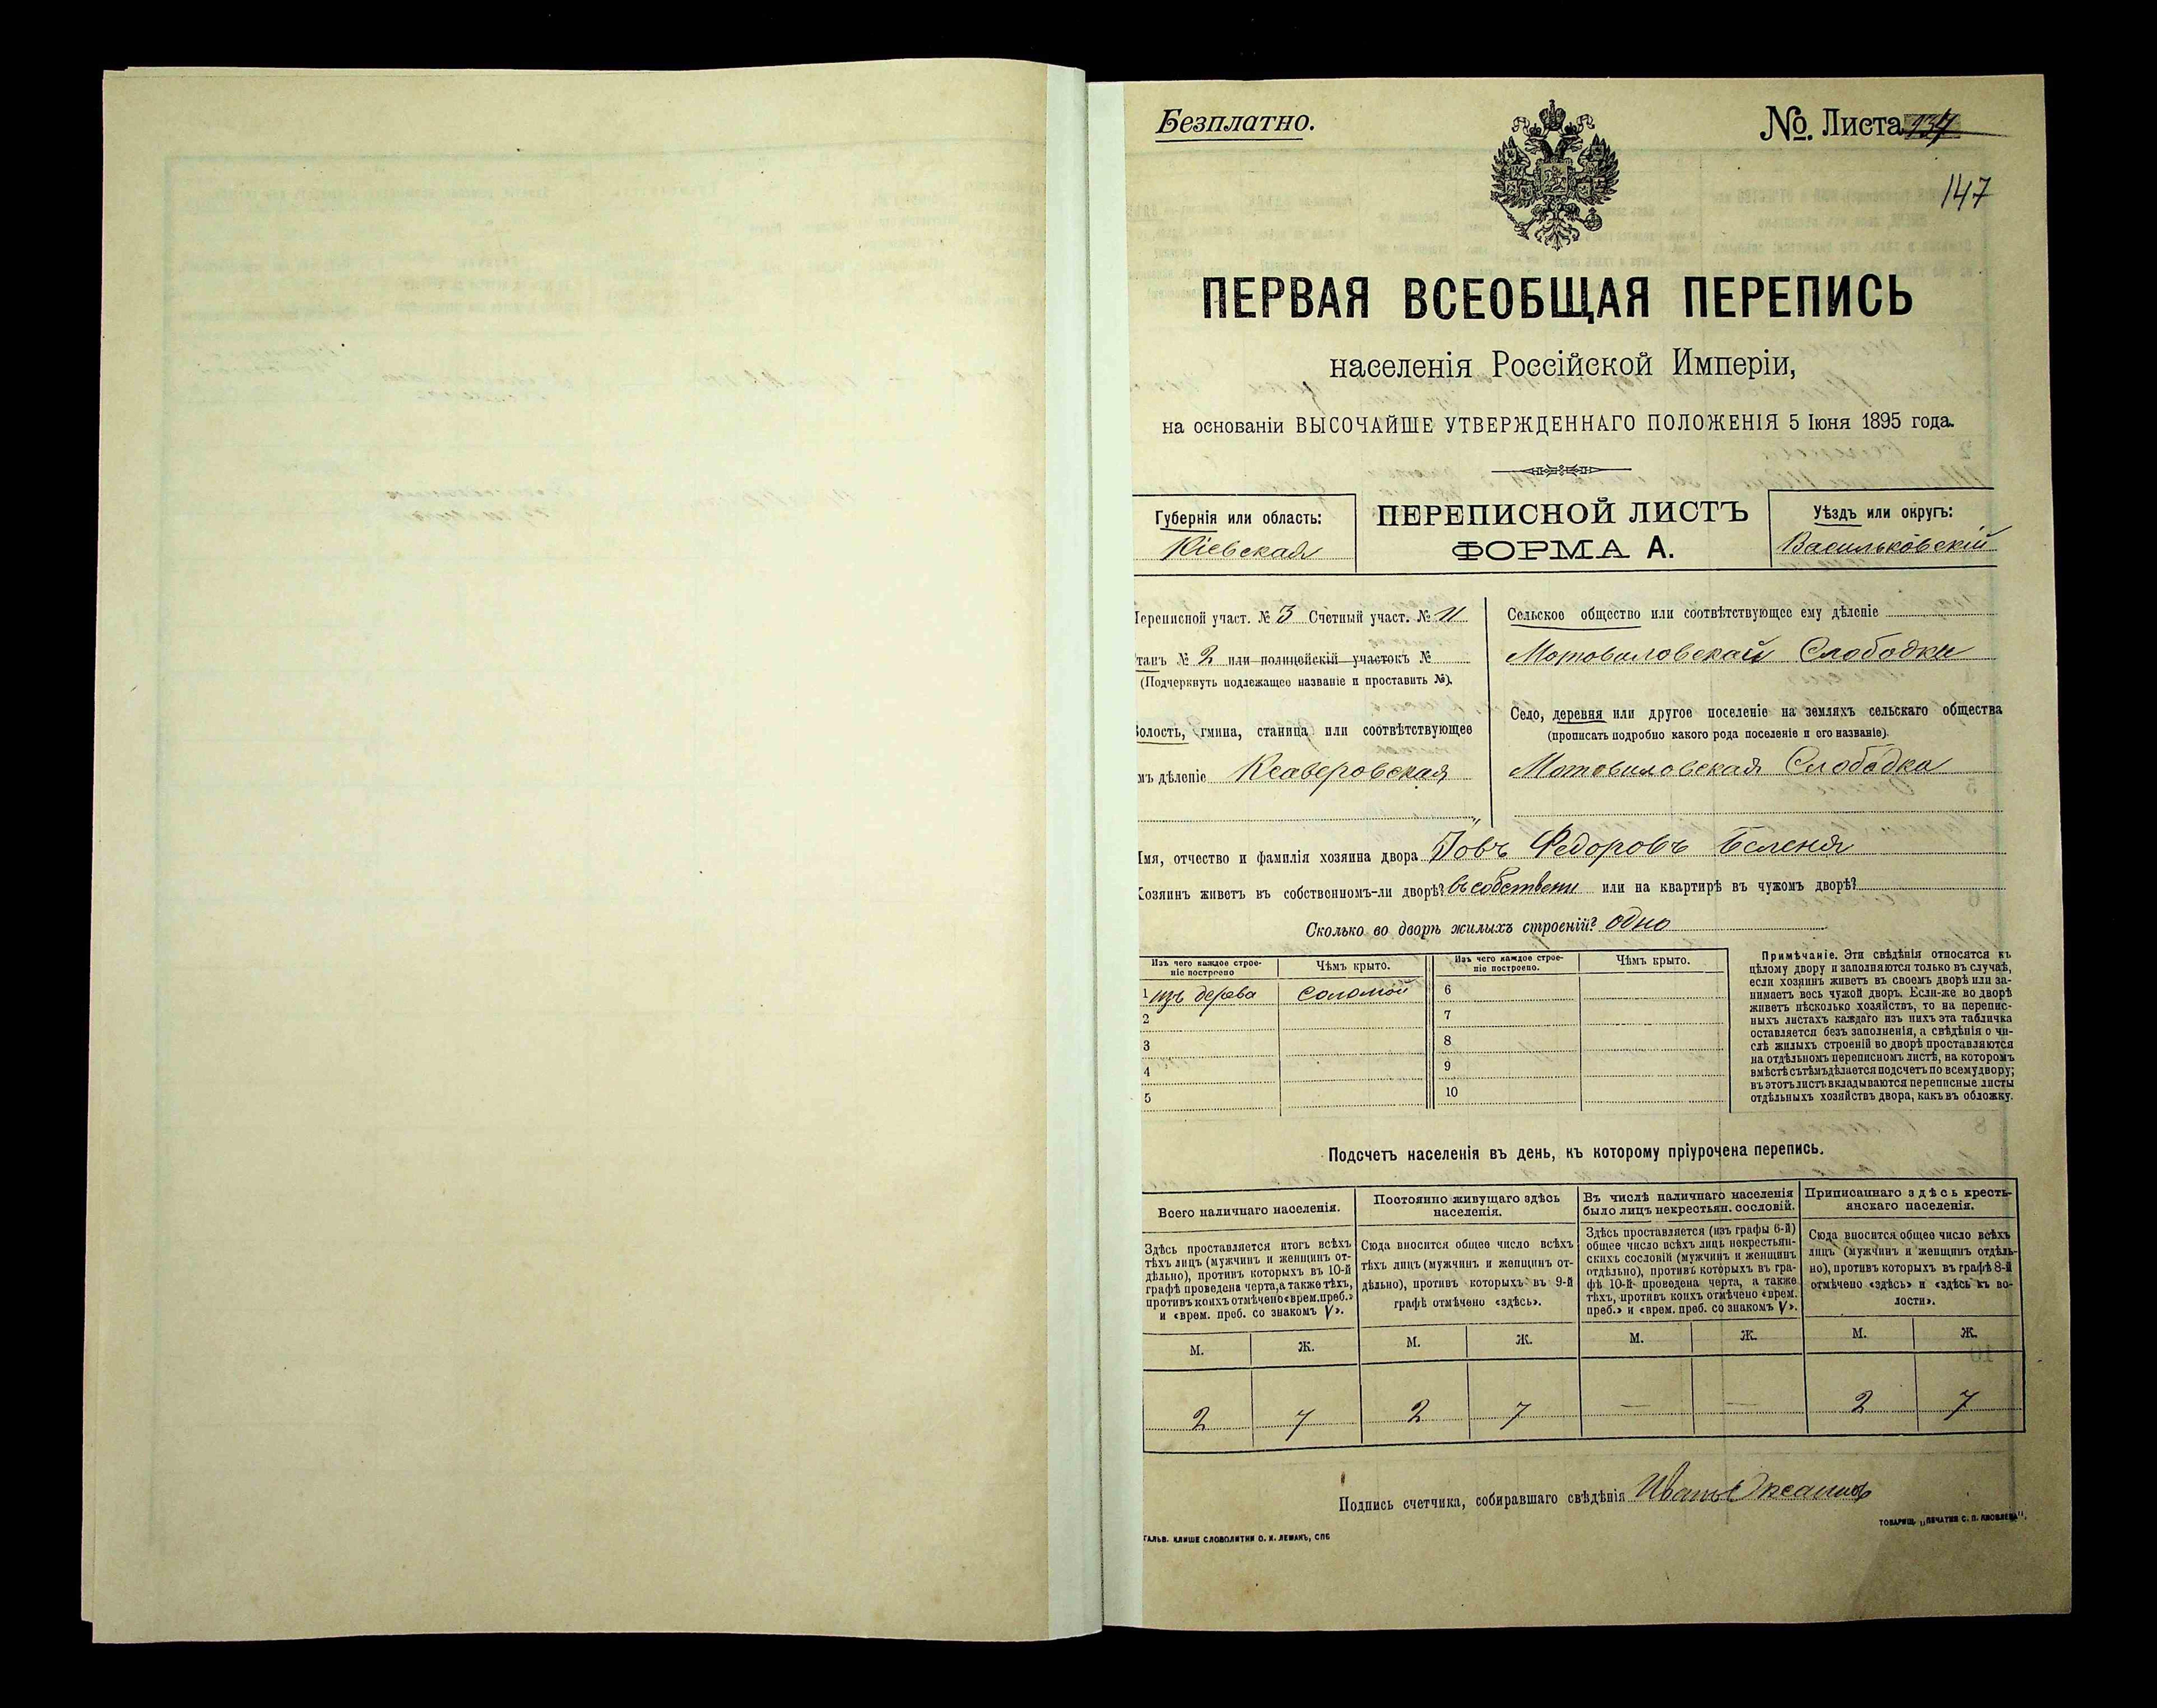 Безплатно.
№ Листа 134
147
ПЕРВАЯ ВСЕОБЩАЯ ПЕРЕПИСЬ
населенія Россійской Имперіи,
на основаніи ВЫСОЧАЙШЕ УТВЕРЖДЕННАГО ПОЛОЖЕНІЯ 5 Іюня 1895 года.
Губернія или область:
Кіевская
ПЕРЕПИСНОЙ ЛИСТЪ
ФОРМА А.
Уѣздъ или округъ:
Васильковскій
Переписной участ. № 3 Счетный участ. № 11
Станъ № 2 или полицейскій участокъ №
(Подчеркнуть подлежащее названіе и проставить №).
Волость, гмина, станица или соотвѣтствующее
имъ дѣленіе Ксаверовская
Сельское общество или соотвѣтствующее ему дѣленіе
Мотовиловской Слободки
Село, деревня или другое поселеніе на земляхъ сельскаго общества
(прописать подробно какого рода поселеніе и его названіе).
Мотовиловская Слободка
Имя, отчество и фамилія хозяина двора Іовъ Федоровъ Беленя
Хозяинъ живетъ въ собственномъ-ли дворѣ? въ собствен или на квартирѣ въ чужомъ дворѣ?
Сколько во дворѣ жилыхъ строеній? одно
Изъ чего каждое строе-
ніе построено
Чѣмъ крыто.
Изъ чего каждое строе-
ніе построено.
Чѣмъ крыто.
1 изъ дерева соломой 6
2 7
3 8
4 9
5 10
Примѣчаніе. Эти свѣдѣнія относятся къ
цѣлому двору и заполняются только въ случаѣ,
если хозяинъ живетъ въ своемъ дворѣ или за-
нимаетъ весь чужой дворъ. Если-же во дворѣ
живетъ нѣсколько хозяйствъ, то на перепис-
ныхъ листахъ каждаго изъ нихъ эта табличка
оставляется безъ заполненія, а свѣдѣнія о чи-
слѣ жилыхъ строеній во дворѣ проставляются
на отдѣльномъ переписномъ листѣ, на которомъ
вмѣстѣ съ тѣмъ дѣлается подсчетъ по всему двору;
въ этотъ листъ вкладываются переписные листы
отдѣльныхъ хозяйствъ двора, какъ въ обложку.
Подсчетъ населенія въ день, къ которому пріурочена перепись.
Всего наличнаго населенія.
Постоянно живущаго здѣсь
населенія.
Въ числѣ наличнаго населенія
было лицъ некрестьян. сословій.
Приписаннаго здѣсь кресть-
янскаго населенія.
Здѣсь проставляется итогъ всѣхъ
тѣхъ лицъ (мужчинъ и женщинъ от-
дѣльно), противъ которыхъ въ 10-й
графѣ проведена черта, а также тѣхъ,
противъ коихъ отмѣчено «врем. преб.»
и «врем. преб. со знакомъ V».
Сюда вносится общее число всѣхъ
тѣхъ лицъ (мужчинъ и женщинъ от-
дѣльно), противъ которыхъ въ 9-й
графѣ отмѣчено «здѣсь».
Здѣсь проставляется (изъ графы 6-й)
общее число всѣхъ лицъ некрестьян-
скихъ сословій (мужчинъ и женщинъ
отдѣльно), противъ которыхъ въ гра-
фѣ 10-й проведена черта, а также
тѣхъ, противъ коихъ отмѣчено «врем.
преб.» и «врем. преб. со знакомъ V».
Сюда вносится общее число всѣхъ
лицъ (мужчинъ и женщинъ отдѣль-
но), противъ которыхъ въ графѣ 8-й
отмѣчено «здѣсь» и «здѣсь къ во-
лости».
М. Ж. М. Ж. М. Ж. М. Ж.
2 7 2 7 — — 2 7
Подпись счетчика, собиравшаго свѣдѣнія Иванъ
ГАЛЬВ. КЛИШЕ СЛОВОЛИТНИ О. И. ЛЕМАНЪ, СПБ
ТОВАРИЩ. „ПЕЧАТНЯ С. П. ЯКОВЛЕВА“.